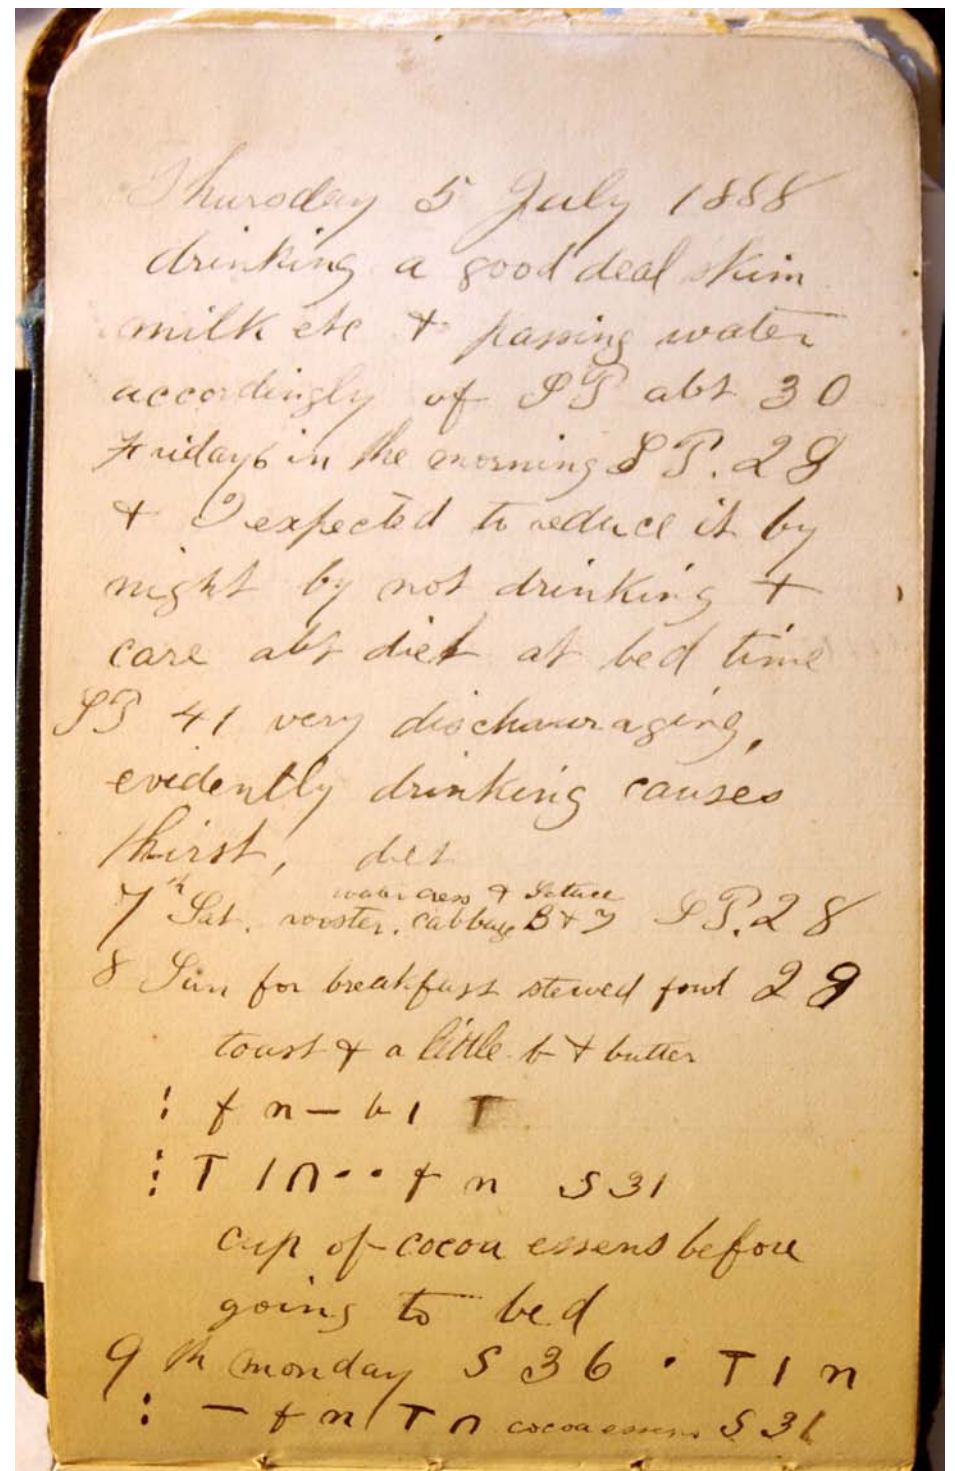 Thursday 5 July 1888
drinking a good deal skim
milk etc + passing water
accordingly of SP abt 30
Friday 6 in the morning SP. 28
+ I expected to reduce it by
night by not drinking +
care abt diet at bed time
SP 41 very dischauraging,
evidently drinking causes
thirst, det
water cress + Letuce
7th Sat. rooster. cabbage B + SP. 28
8 Sun for breakfast stewed fowl 29
toast + a little b + butter
f n — b 1 T
T 1 n • • f n S 31
cup of cocoa essens before
going to bed
9th monday S 36 • T 1 n
: — f n / T n cocoa essens S 31